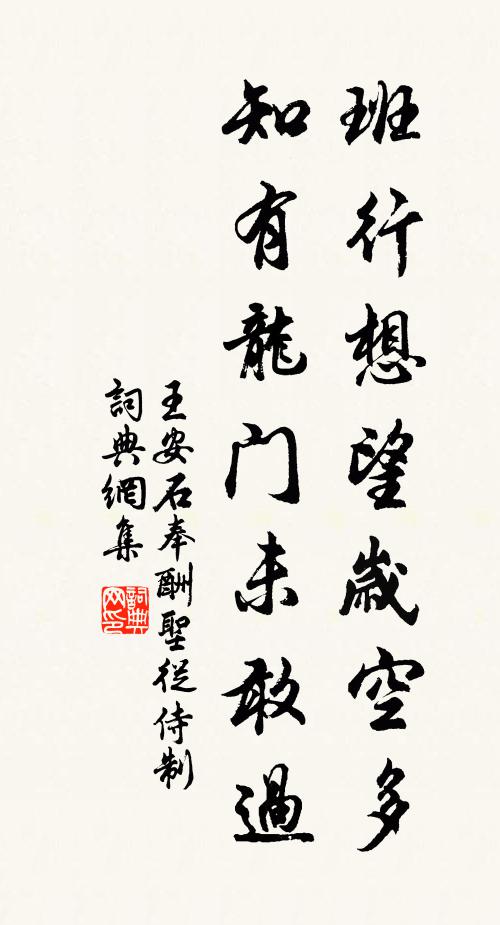 班行想望歲空多
知有龍门未敢過
王安石奉酬聖從侍制
詞典網集
詞典网印